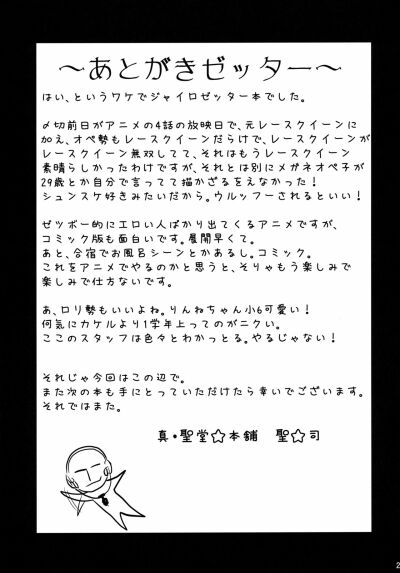 ～あとがきゼッター～
はい、というワケでジャイロゼッター本でした。
〆切前日がアニメの4話の放映日で、元レースクイーンに
加え、オペ勢もレースクイーンだらけで、レースクイーンが
レースクイーン無双してて、それはもうレースクイーン
素晴らしかったわけですが、それとは別にメガネオペ子が
29歳とか自分で言ってて描かざるをえなかった！
シュンスケ好きみたいだから。ウルッフーされるといい！
ゼツボー的にエロい人ばかり出てくるアニメですが、
コミック版も面白いです。展開早くて。
あと、合宿でお風呂シーンとかあるし。コミック。
これをアニメでやるのかと思うと、そりゃもう楽しみで
楽しみで仕方ないです。
あ、ロリ勢もいいよね。りんねちゃん小6可愛い！
何気にカケルより1学年上ってのがニクい。
ここのスタッフは色々とわかっとる。やるじゃない！
それじゃ今回はこの辺で。
また次の本も手にとっていただけたら幸いでございます。
それではまた。
真・聖堂☆本舗 聖☆司
2